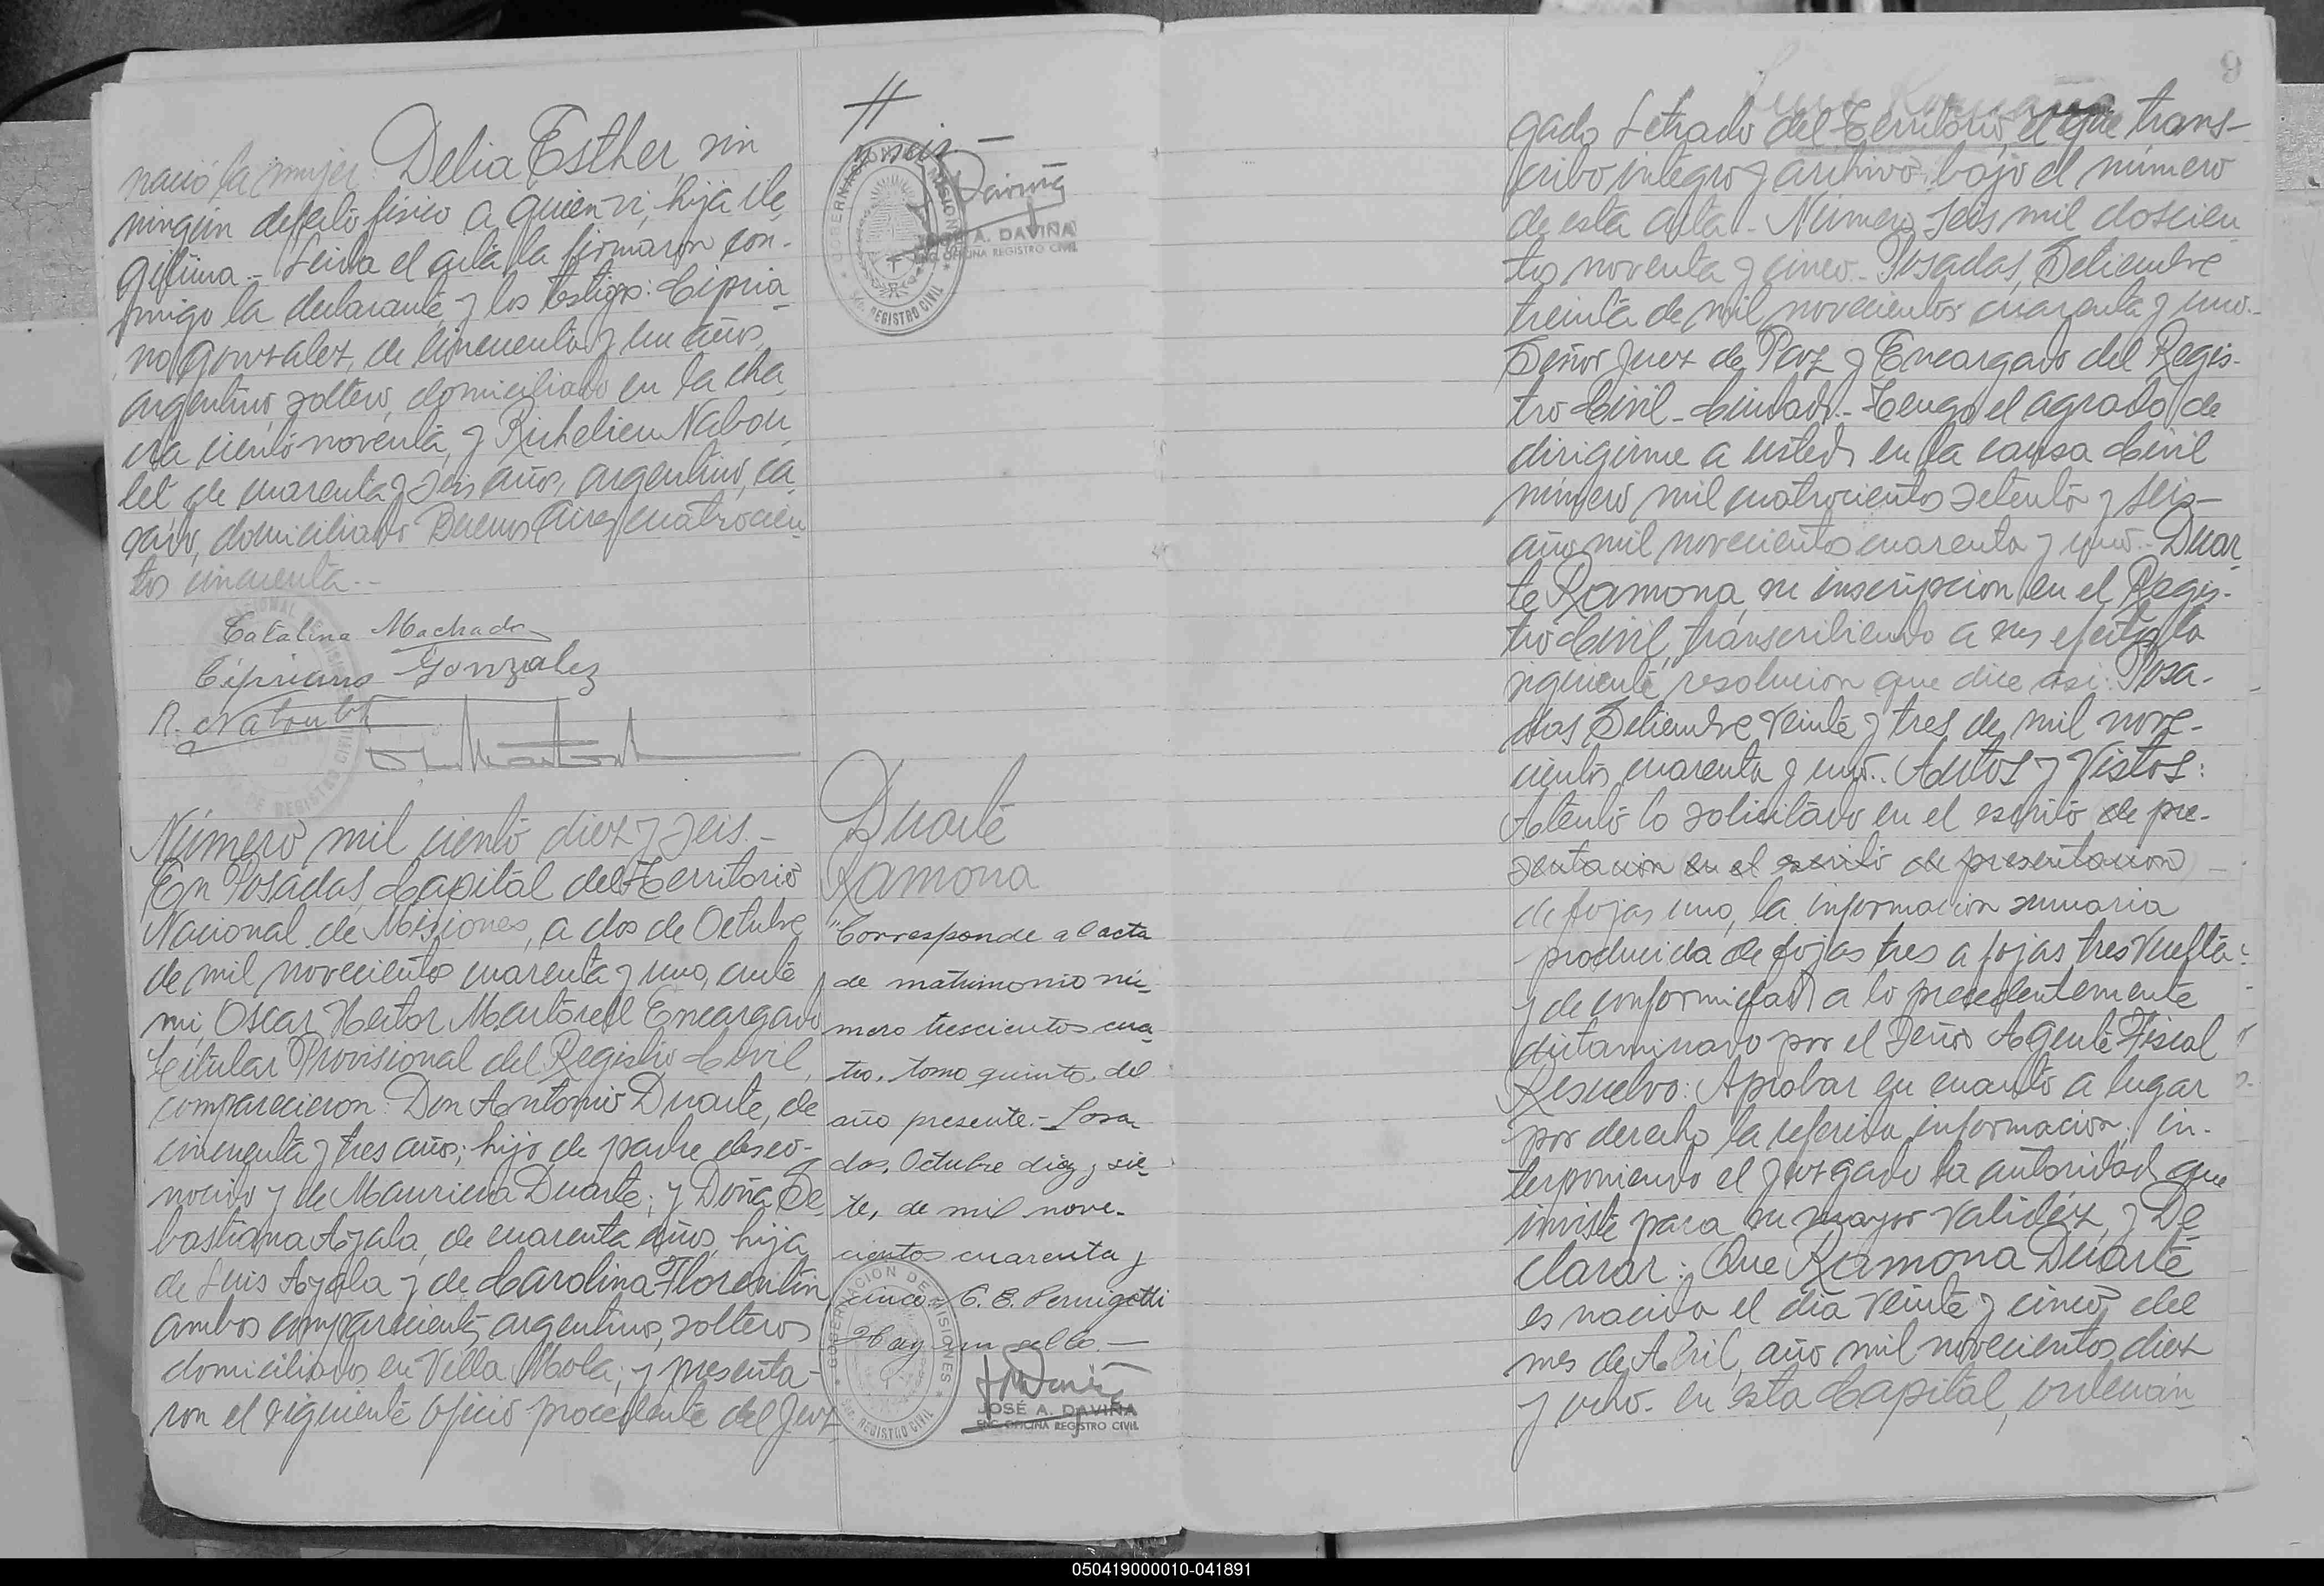 nació la mujer: Delia Esther, sin
ningún defecto físico a quien vi, hija ile
gítima.- Leida el acta la firmaron con-
migo la declarante y los testigos: Cipria-
no Gonzalez, de cincuenta y un años,
argentino, soltero, domiciliado en la cha
cra ciento noventa, y Richelieu Nabou
let de cuarenta y seis años, argentino, ca
sado, domiciliado Buenos Aires cuatrocien
tos cincuenta.-
Catalina Machado
Cipriano Gonzalez
R. Naboulet
Número mil ciento diez y seis.-
En Posadas, Capital del Territorio
Nacional de Misiones, a dos de Octubre
de mil novecientos cuarenta y uno, ante
mi, Oscar Hector Martorell Encargado
Titular Provisional del Registro Civil,
comparecieron: Don Antonio Duarte, de
cincuenta y tres años; hijo de padre desco-
nocido y de Mauricia Duarte; y Doña Se
bastiana Ayala, de cuarenta años, hija
de Luis Ayala y de Carolina Florentin
ambos comparecientes argentinos, solteros
domiciliados en Villa Mola; y presenta-
ron el siguiente oficio procedente del Juz
GOBERNACION DE MISIONES
REGISTRO CIVIL
JOSÉ A. DAVIÑA
ENC. OFICINA REGISTRO CIVIL
Duarte
Ramona
"Corresponde al acta
de matrimonio nú-
mero trescientos cua
tro, tomo quinto, del
año presente.- Posa
das, Octubre diez y sie
te, de mil nove-
cientos cuarenta y
cinco. C. E. Pernigotti
Hay un sello.-
GOBERNACION DE MISIONES
REGISTRO CIVIL
JOSÉ A. DAVIÑA
ENC. OFICINA REGISTRO CIVIL
9
gado Letrado del Territorio, el que trans-
cribo íntegro y archivo bajo el número
de esta acta.- Número seis mil doscien
tos noventa y cinco.- Posadas, Setiembre
treinta de mil novecientos cuarenta y uno.-
Señor Juez de Paz y Encargado del Regis-
tro Civil - Ciudad.- Tengo el agrado de
dirigirme a usted, en la causa Civil
número mil cuatrocientos setenta y seis-
año mil novecientos cuarenta y uno.- Duar
te Ramona su inscripcion en el Regis-
tro Civil, transcribiendo a sus efectos la
siguiente resolucion que dice asi: Posa-
das Setiembre veinte y tres de mil nove-
cientos cuarenta y uno.. Autos y Vistos:
Atento lo solicitado en el escrito de pre-
sentacion en el escrito de presentacion
de fojas uno, la informacion sumaria
producida de fojas tres a fojas tres vuelta
y de conformidad a lo precedentemente
dictaminado por el Señor Agente Fiscal
Resuelvo: Aprobar en cuanto a lugar
por derecho la referida informacion, in-
terponiendo el Juzgado la autoridad que
inviste para su mayor validéz, y De
clarar: Que Ramona Duarte
es nacida el dia veinte y cinco del
mes de Abril, año mil novecientos diez
y ocho. en esta Capital, ordenán
050419000010-041891